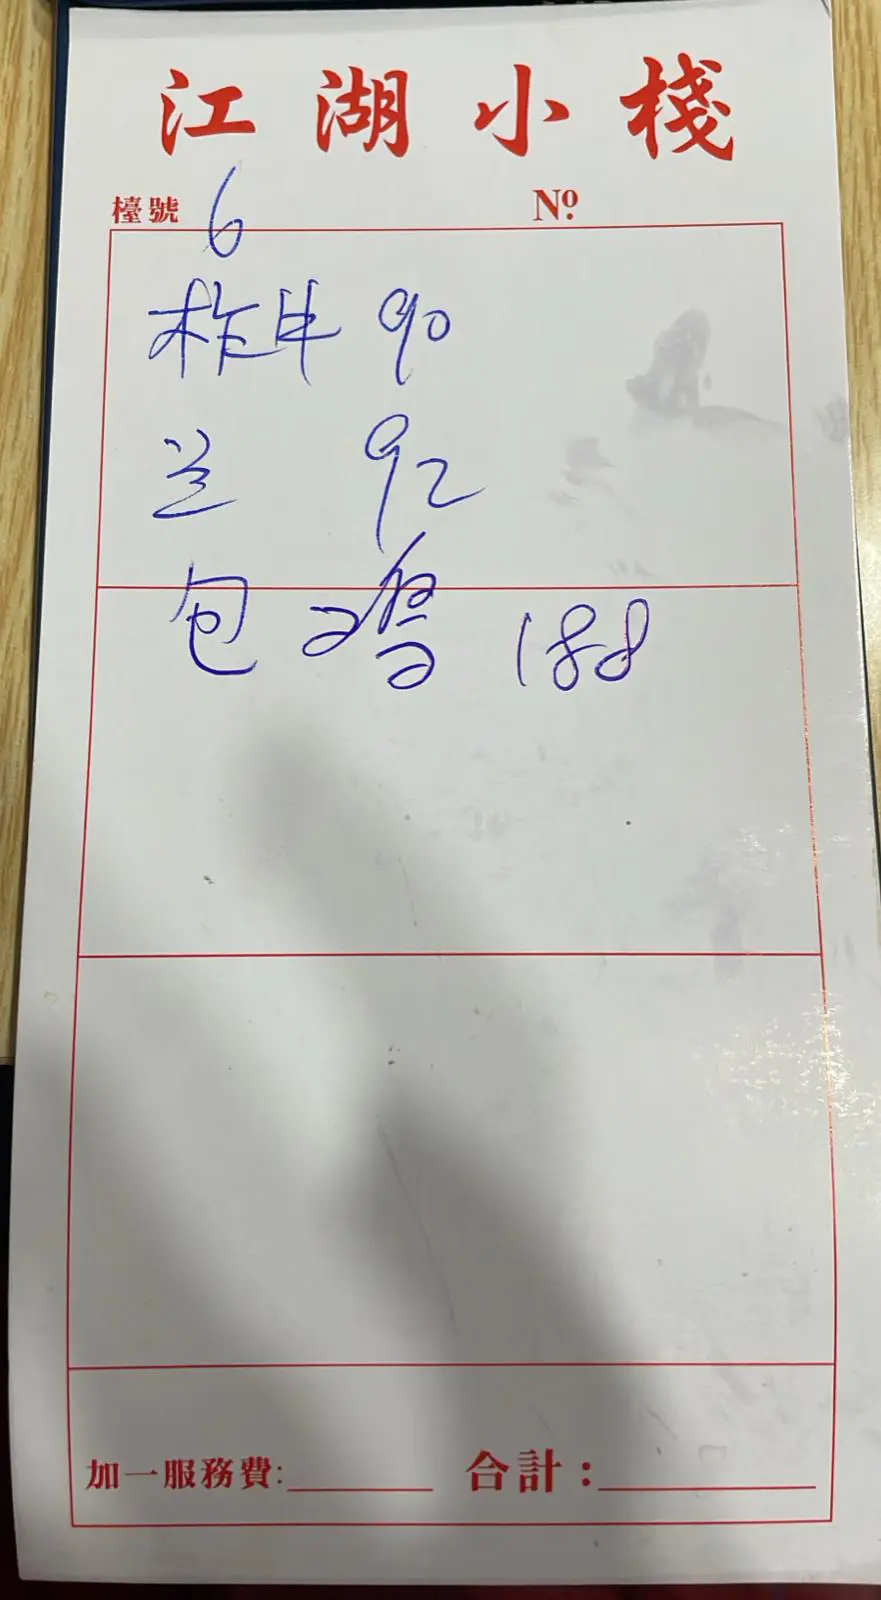 江湖小棧
檯號 6 Nº
柞牛 90
兰 92
包 188
加一服務費: 合計：